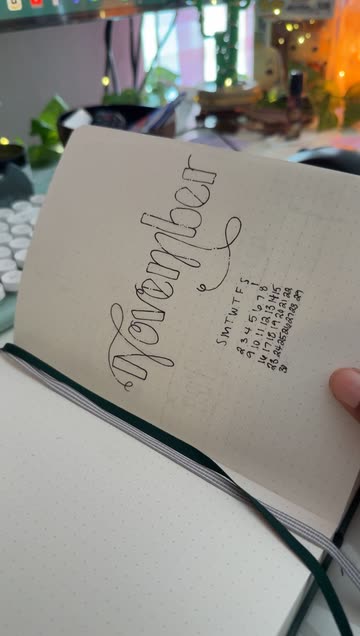 November
S M T W T F S
1
2 3 4 5 6 7 8
9 10 11 12 13 14 15
16 17 18 19 20 21 22
23 24 25 26 27 28 29
30